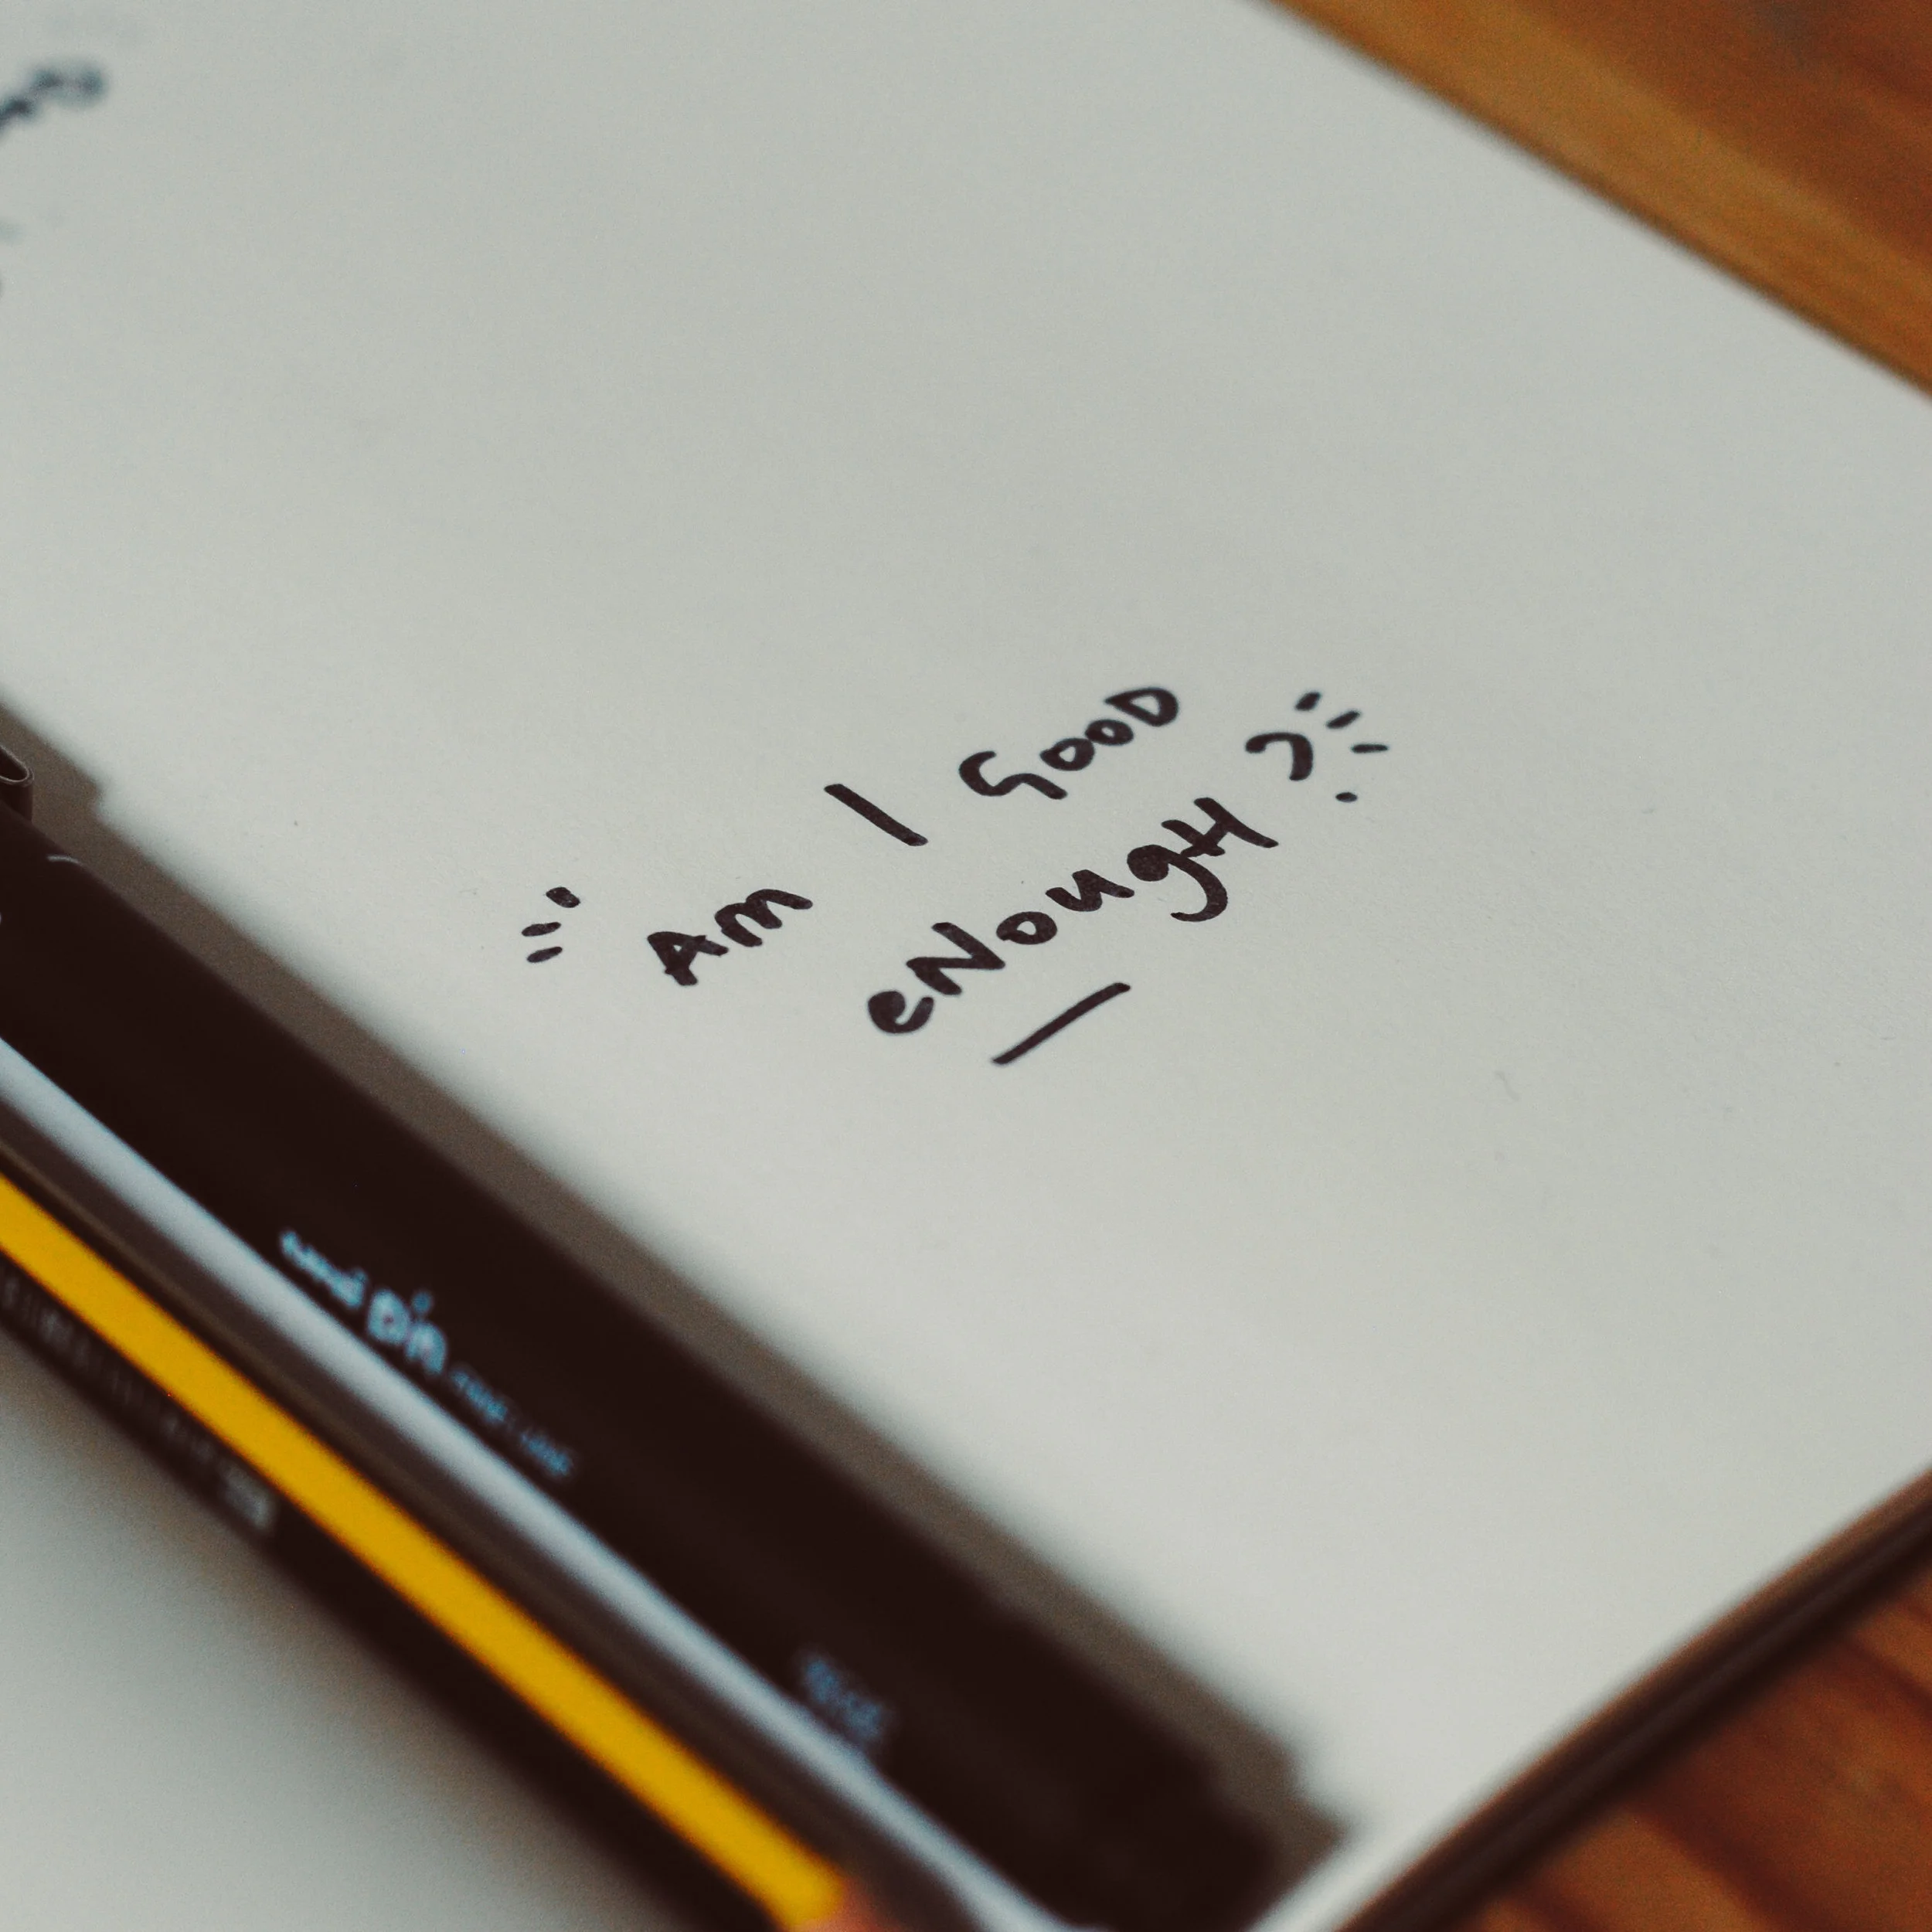 Am I GOOD
eNougH?
uni Pin